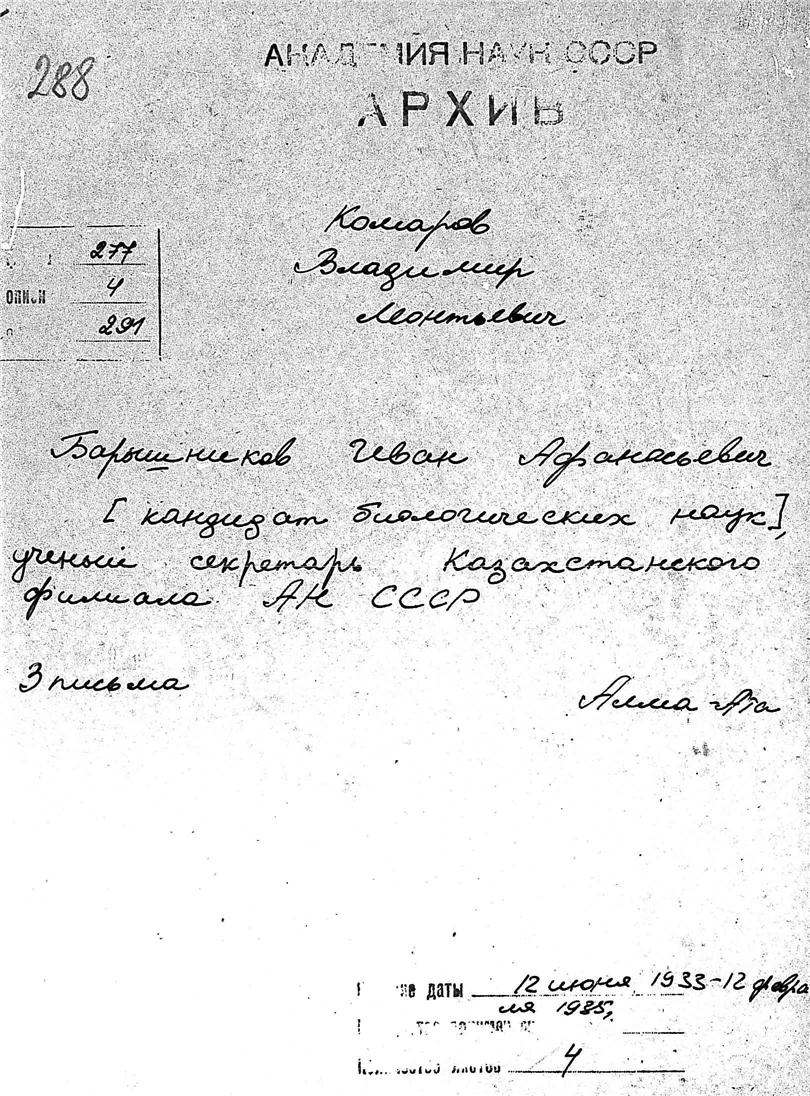 288
АКАДЕМИЯ НАУК СССР
АРХИВ
Комаров
Владимир
Леонтьевич
277
описи 4
291
Барышников Иван Афанасьевич
[кандидат биологических наук],
ученый секретарь Казахстанского
филиала АН СССР
3 письма
Алма-Ата
даты 12 июня 1933-12 февра
ля 1935,
Количество листов 4